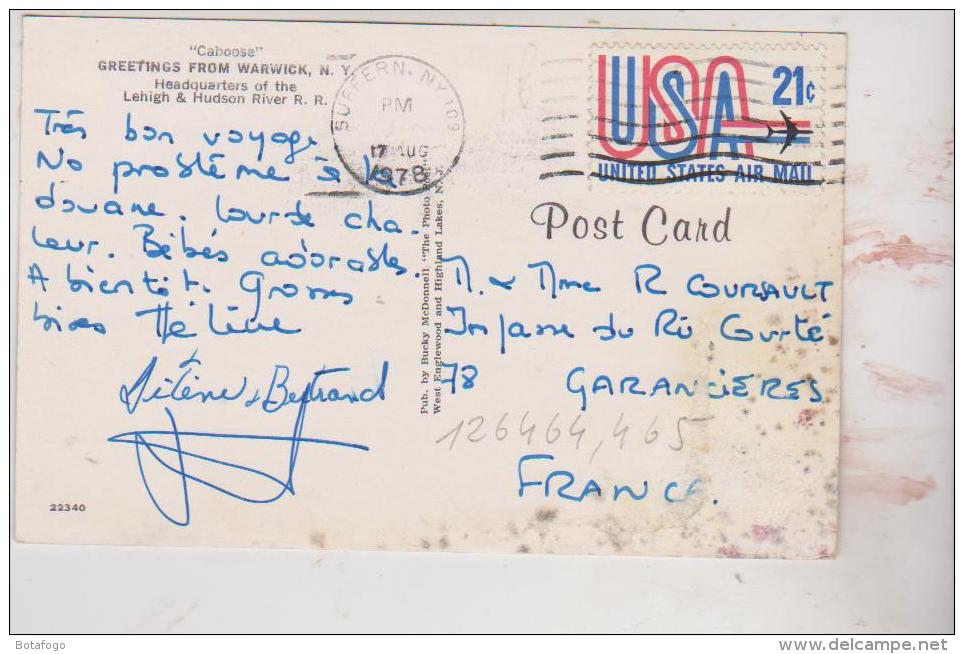 "Caboose"
GREETINGS FROM WARWICK, N. Y.
Headquarters of the
Lehigh & Hudson River R. R.
Très bon voyage.
No problème à la
douane. Lourde cha-
leur. Bébés adorables.
A bientôt. Grosses
bises Hélène
Hélène & Bertrand
22340
SUFFERN, NY 109
PM
17 AUG
1978
Pub. by Bucky McDonnell, "The Photo
West Englewood and Highland Lakes, N. J.
USA 21c
UNITED STATES AIR MAIL
Post Card
M. & Mme R COURAULT
Impasse du Ru Gurté
78 GARANCIERES
126464,465
FRANCE.
Botafogo
www.delcampe.net